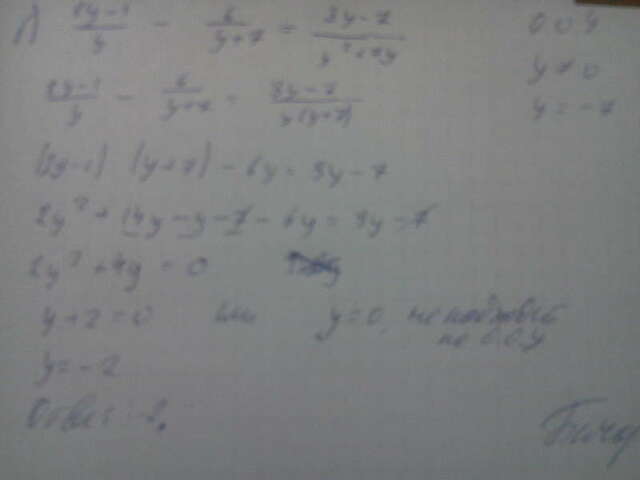 1) (2y-1)/y - 6/(y+7) = (3y-7)/(y²+7y) О.О.У
(2y-1)/y - 6/(y+7) = (3y-7)/(y(y+7)) y≠0
y=-7
(2y-1) (y+7) - 6y = 3y-7
2y² + 14y - y - 7 - 6y = 3y - 7
2y² + 4y = 0
y+2=0 или y=0, не подходит
по О.О.У
y=-2
Ответ: -2.